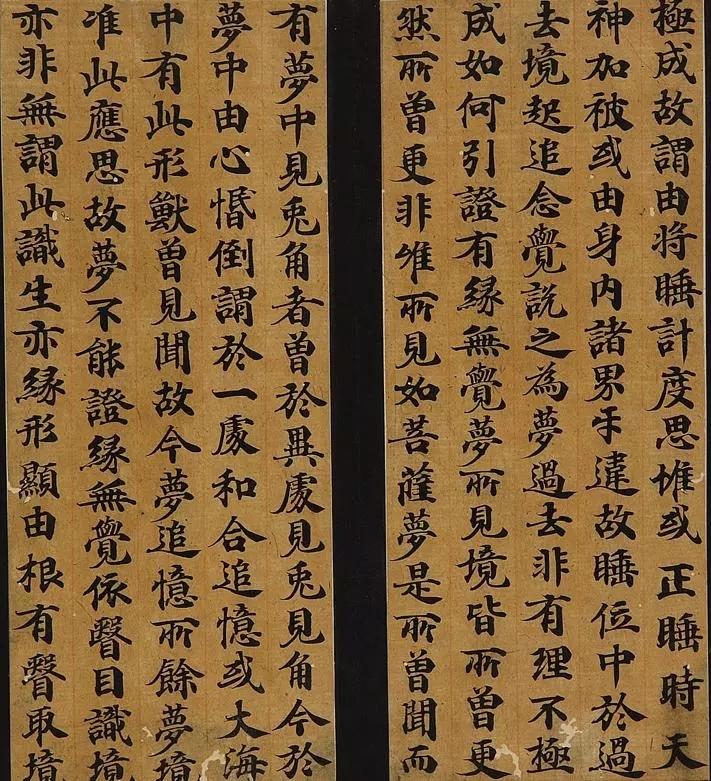 極成故謂由將睡計度思惟或正睡時天
神加被或由身內諸界互違故睡位中於過
去境起追念覺說之為夢過去非有理不極
成如何引證有緣無覺夢所見境皆所曾更
然所曾更非唯所見如菩薩夢是所曾聞而
有夢中見兎角者曾於異處見兎見角今於
夢中由心惛倒謂於一處和合追憶或大海
中有此形獸曾見聞故今夢追憶所餘夢境
准此應思故夢不能證緣無覺依瞖目識境
亦非無謂此識生亦緣形顯由根有瞖取境